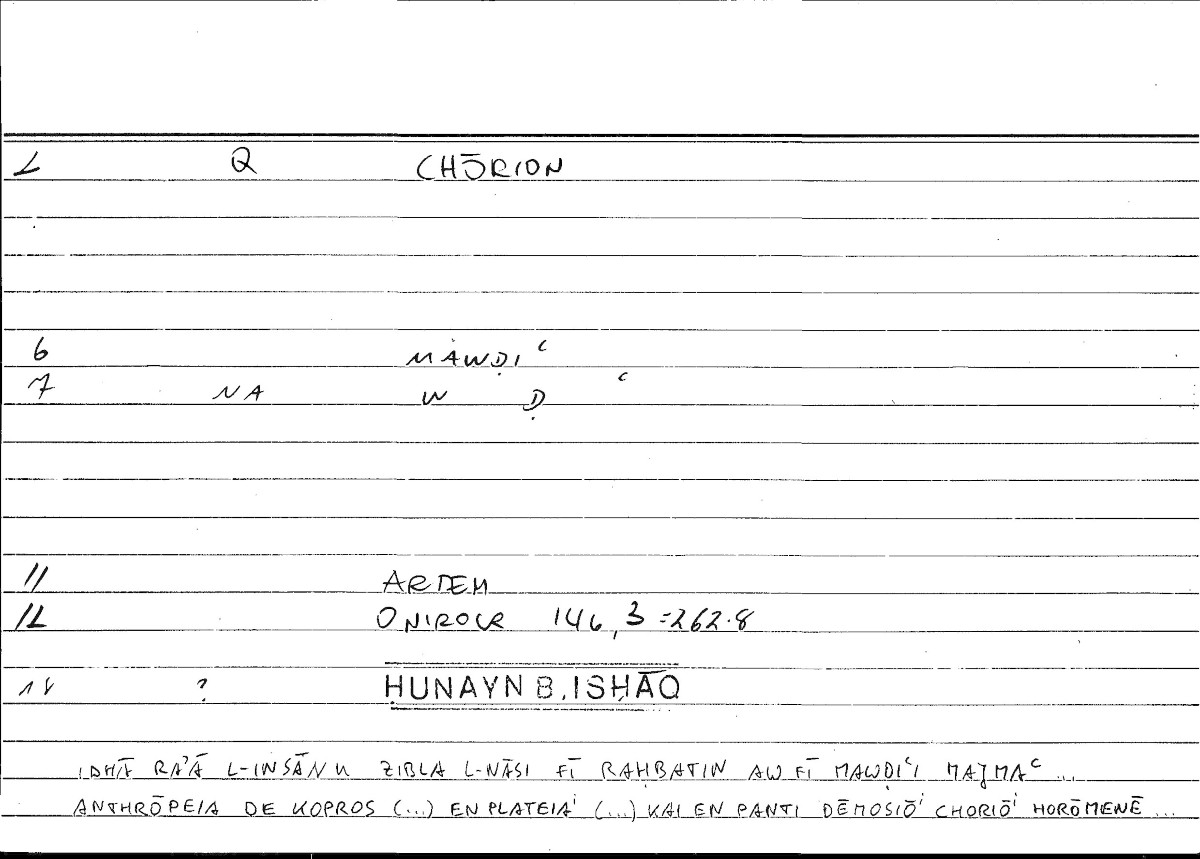 L Q CHŌRION
6 MAWḌIʿ
7 NA W Ḍ ʿ
11 ARTEM
12 ONIROCR 146,3 =262.8
14 ? ḤUNAYN B. ISḤĀQ
IDHĀ RAʾĀ L-INSĀNU ZIBLA L-NĀSI FĪ RAḤBATIN AW FĪ MAWḌIʿI MAJMAʿ ...
ANTHRŌPEIA DE KOPROS (...) EN PLATEIAⁱ (...) KAI EN PANTI DĒMOSIŌⁱ CHORIŌⁱ HORŌMENĒ ...